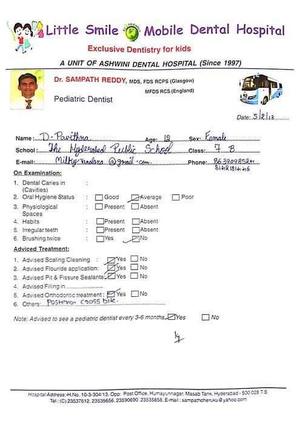 Little Smile Mobile Dental Hospital
Exclusive Dentistry for kids
A UNIT OF ASHWINI DENTAL HOSPITAL (Since 1997)
Dr. SAMPATH REDDY, MDS, FDS RCPS (Glasgow)
MFDS RCS (England)
Pediatric Dentist
Date: 5/2/13
Name: D. Pavithra Age: 12 Sex: Female
School: The Hyderabad Public School Class: 7 B
E-mail: @gmail.com
On Examination:
1. Dental Caries in (Cavities) :
2. Oral Hygiene Status : Good Average Poor
3. Physiological Spaces : Present Absent
4. Habits : Present Absent
5. Irregular teeth : Present Absent
6. Brushing twice : Yes No
Advised Treatment:
1. Advised Scaling Cleaning : Yes No
2. Advised Flouride application: Yes No
3. Advised Pit & Fissure Sealants: Yes No
4. Advised Filling in
5. Advised Orthodontic treatment: Yes No
6. Others: Posterior cross bite.
Note: Advised to see a pediatric dentist every 3-6 months Yes No
Hospital Address: H.No. 10-3-304/13, Opp. Post Office, Humayunnagar, Masab Tank, Hyderabad - 500 028 T.S